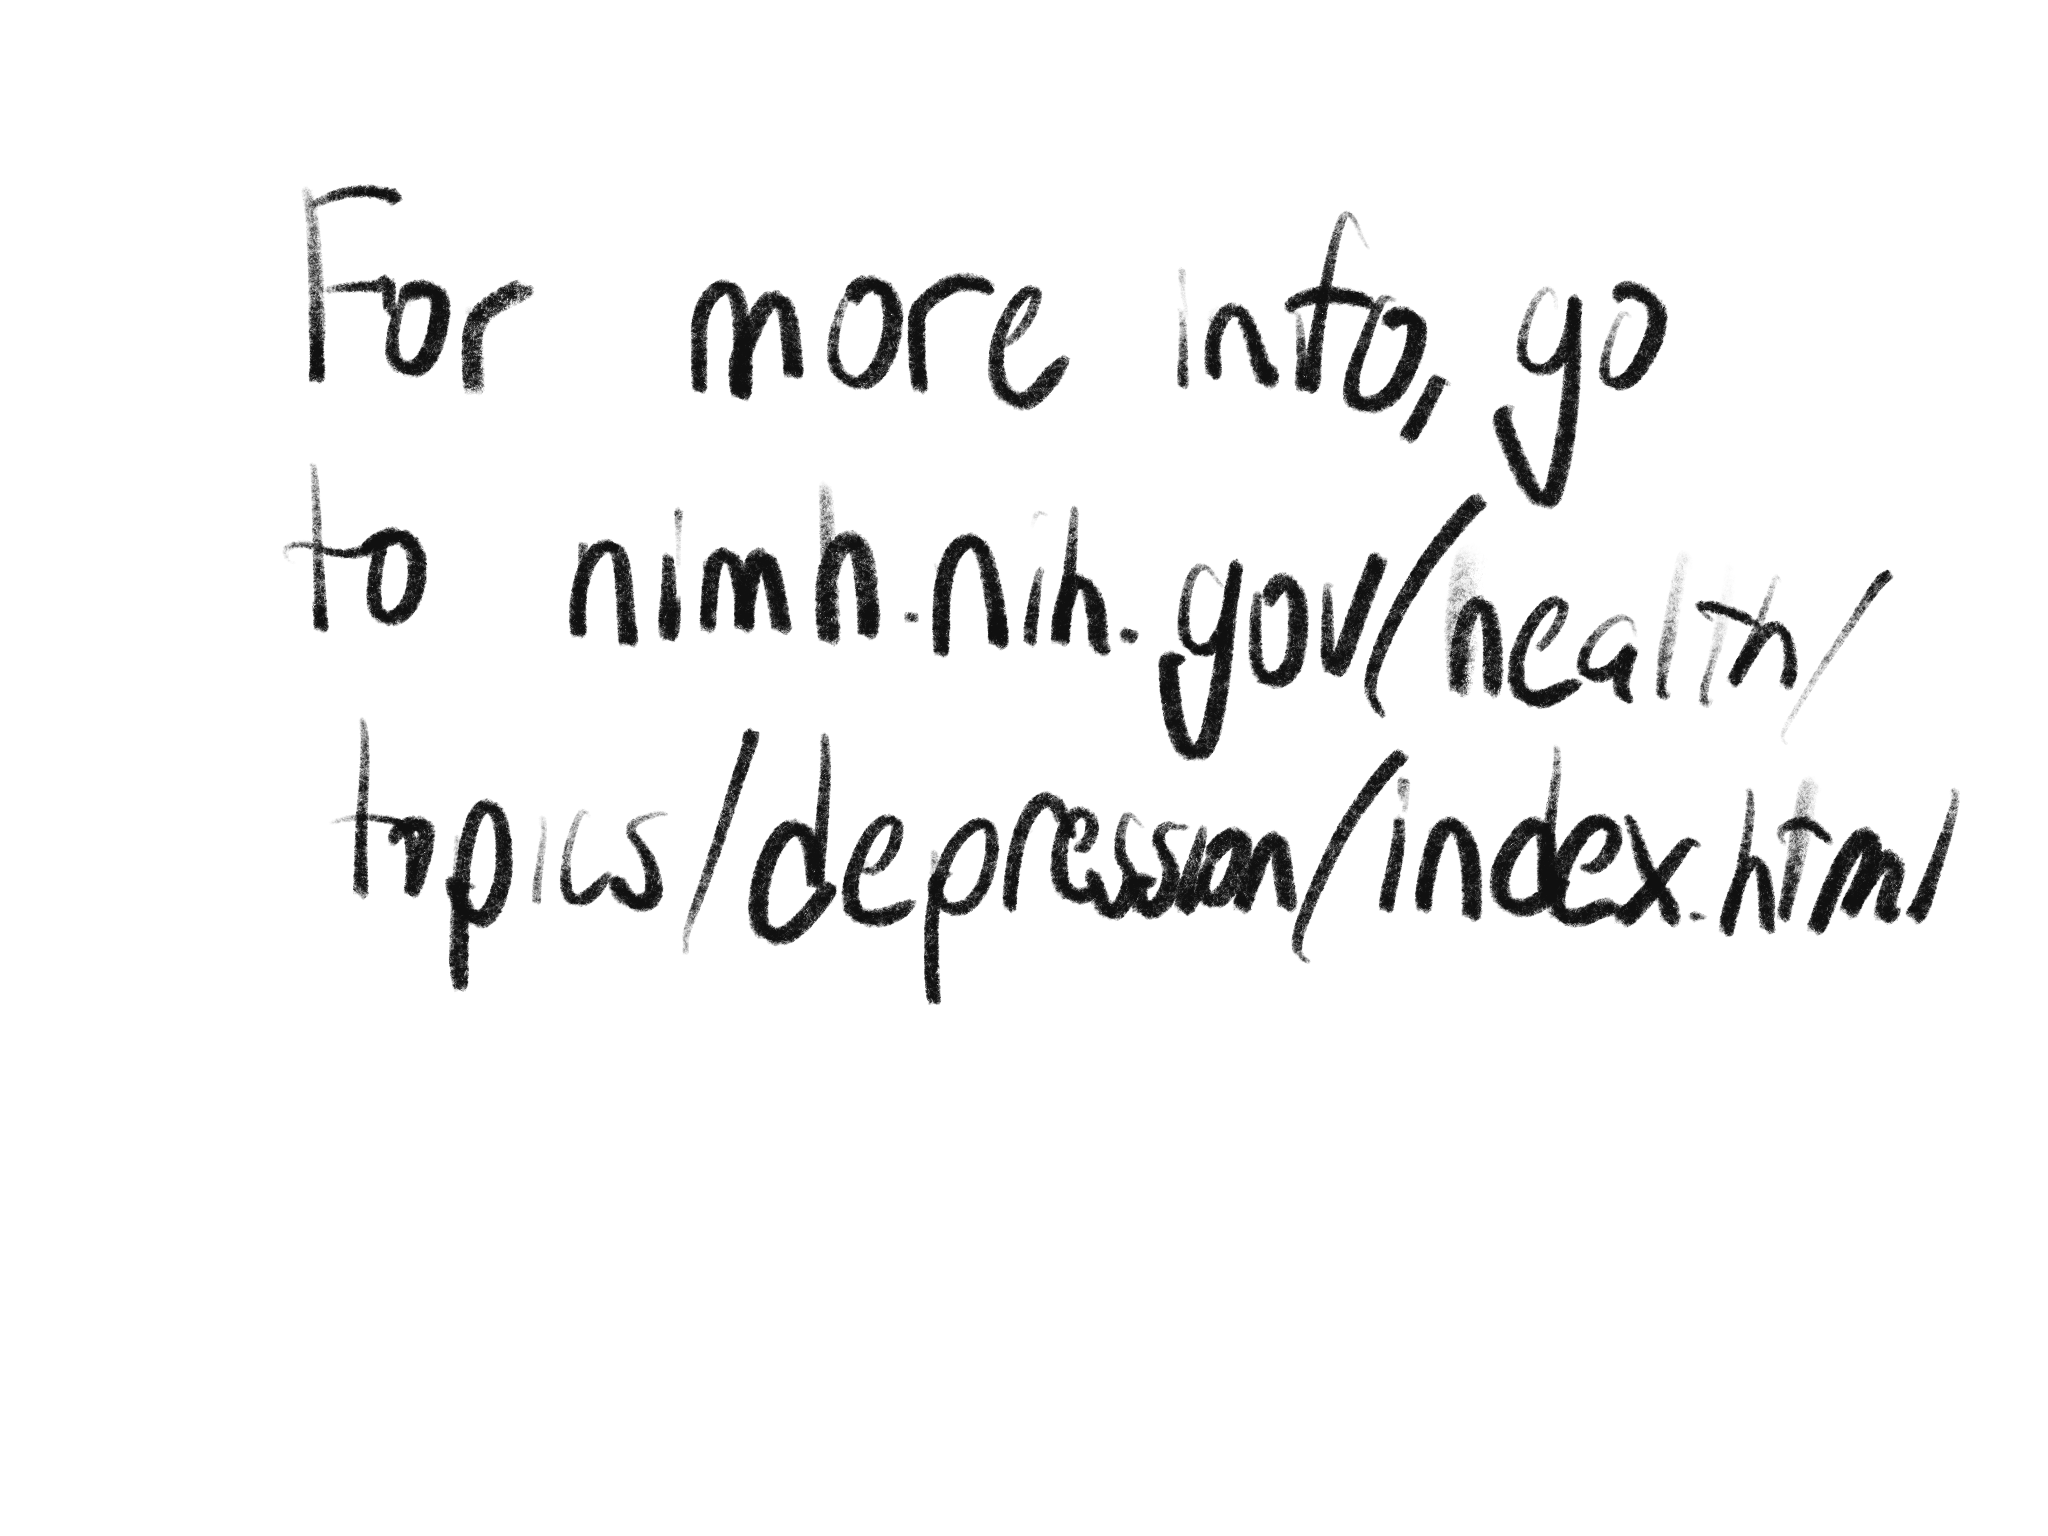 For more info, go
to nimh.nih.gov/health/
topics/depression/index.html